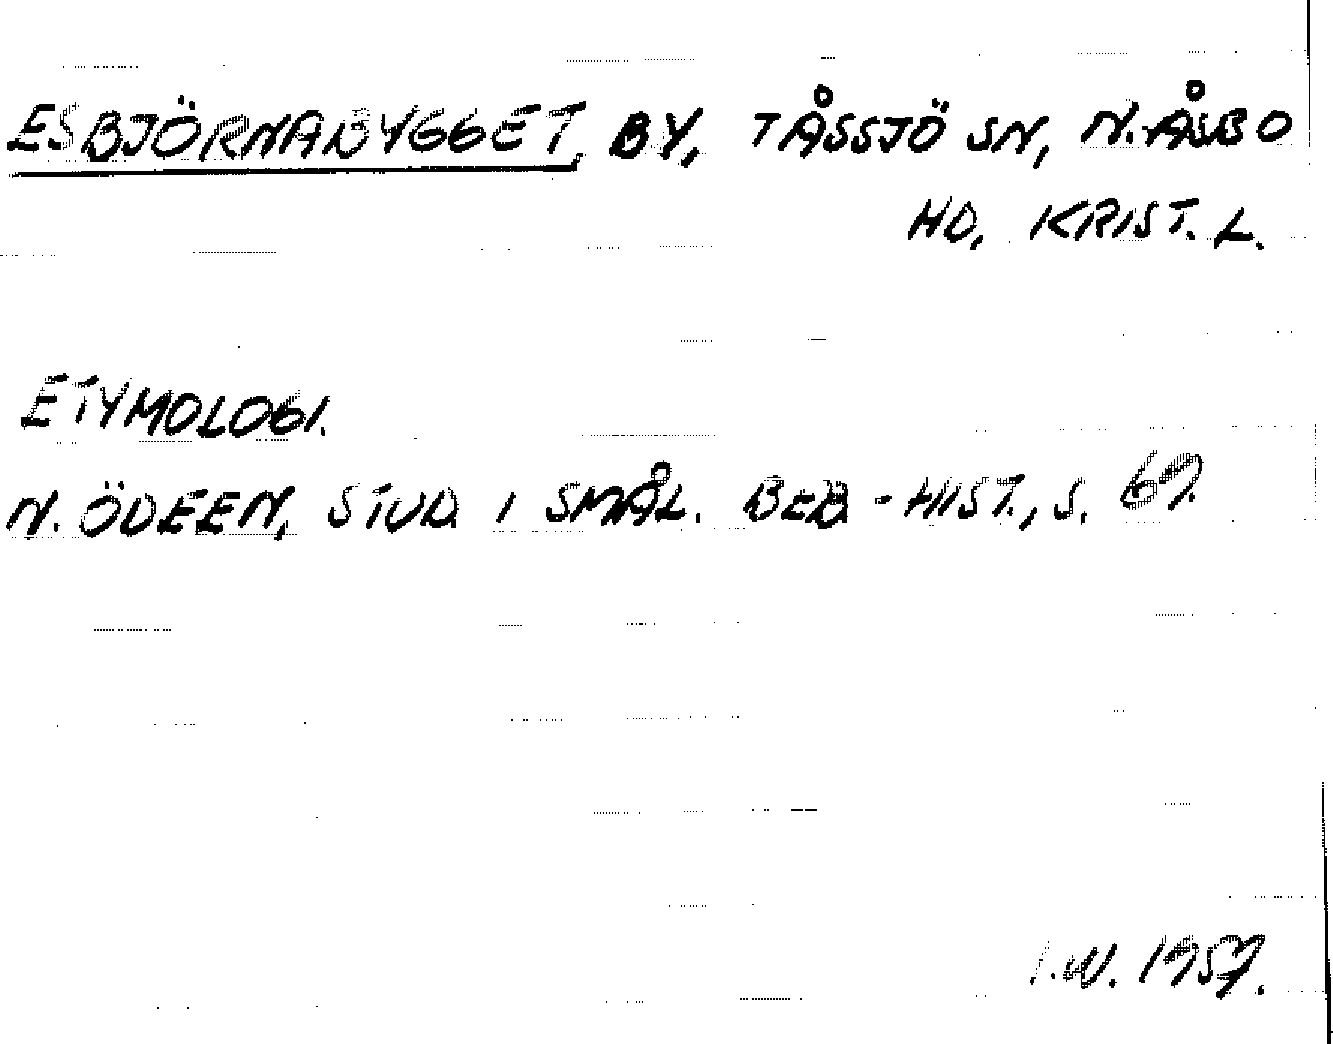 ESBJÖRNABYGGET, BY, TÅSSJÖ SN, N. ÅSBO
HD, KRIST. L.
ETYMOLOGI.
N. ÖDEEN, STUD. I SMÅL. BEB.-HIST., S. 69.
I.W. 1957.